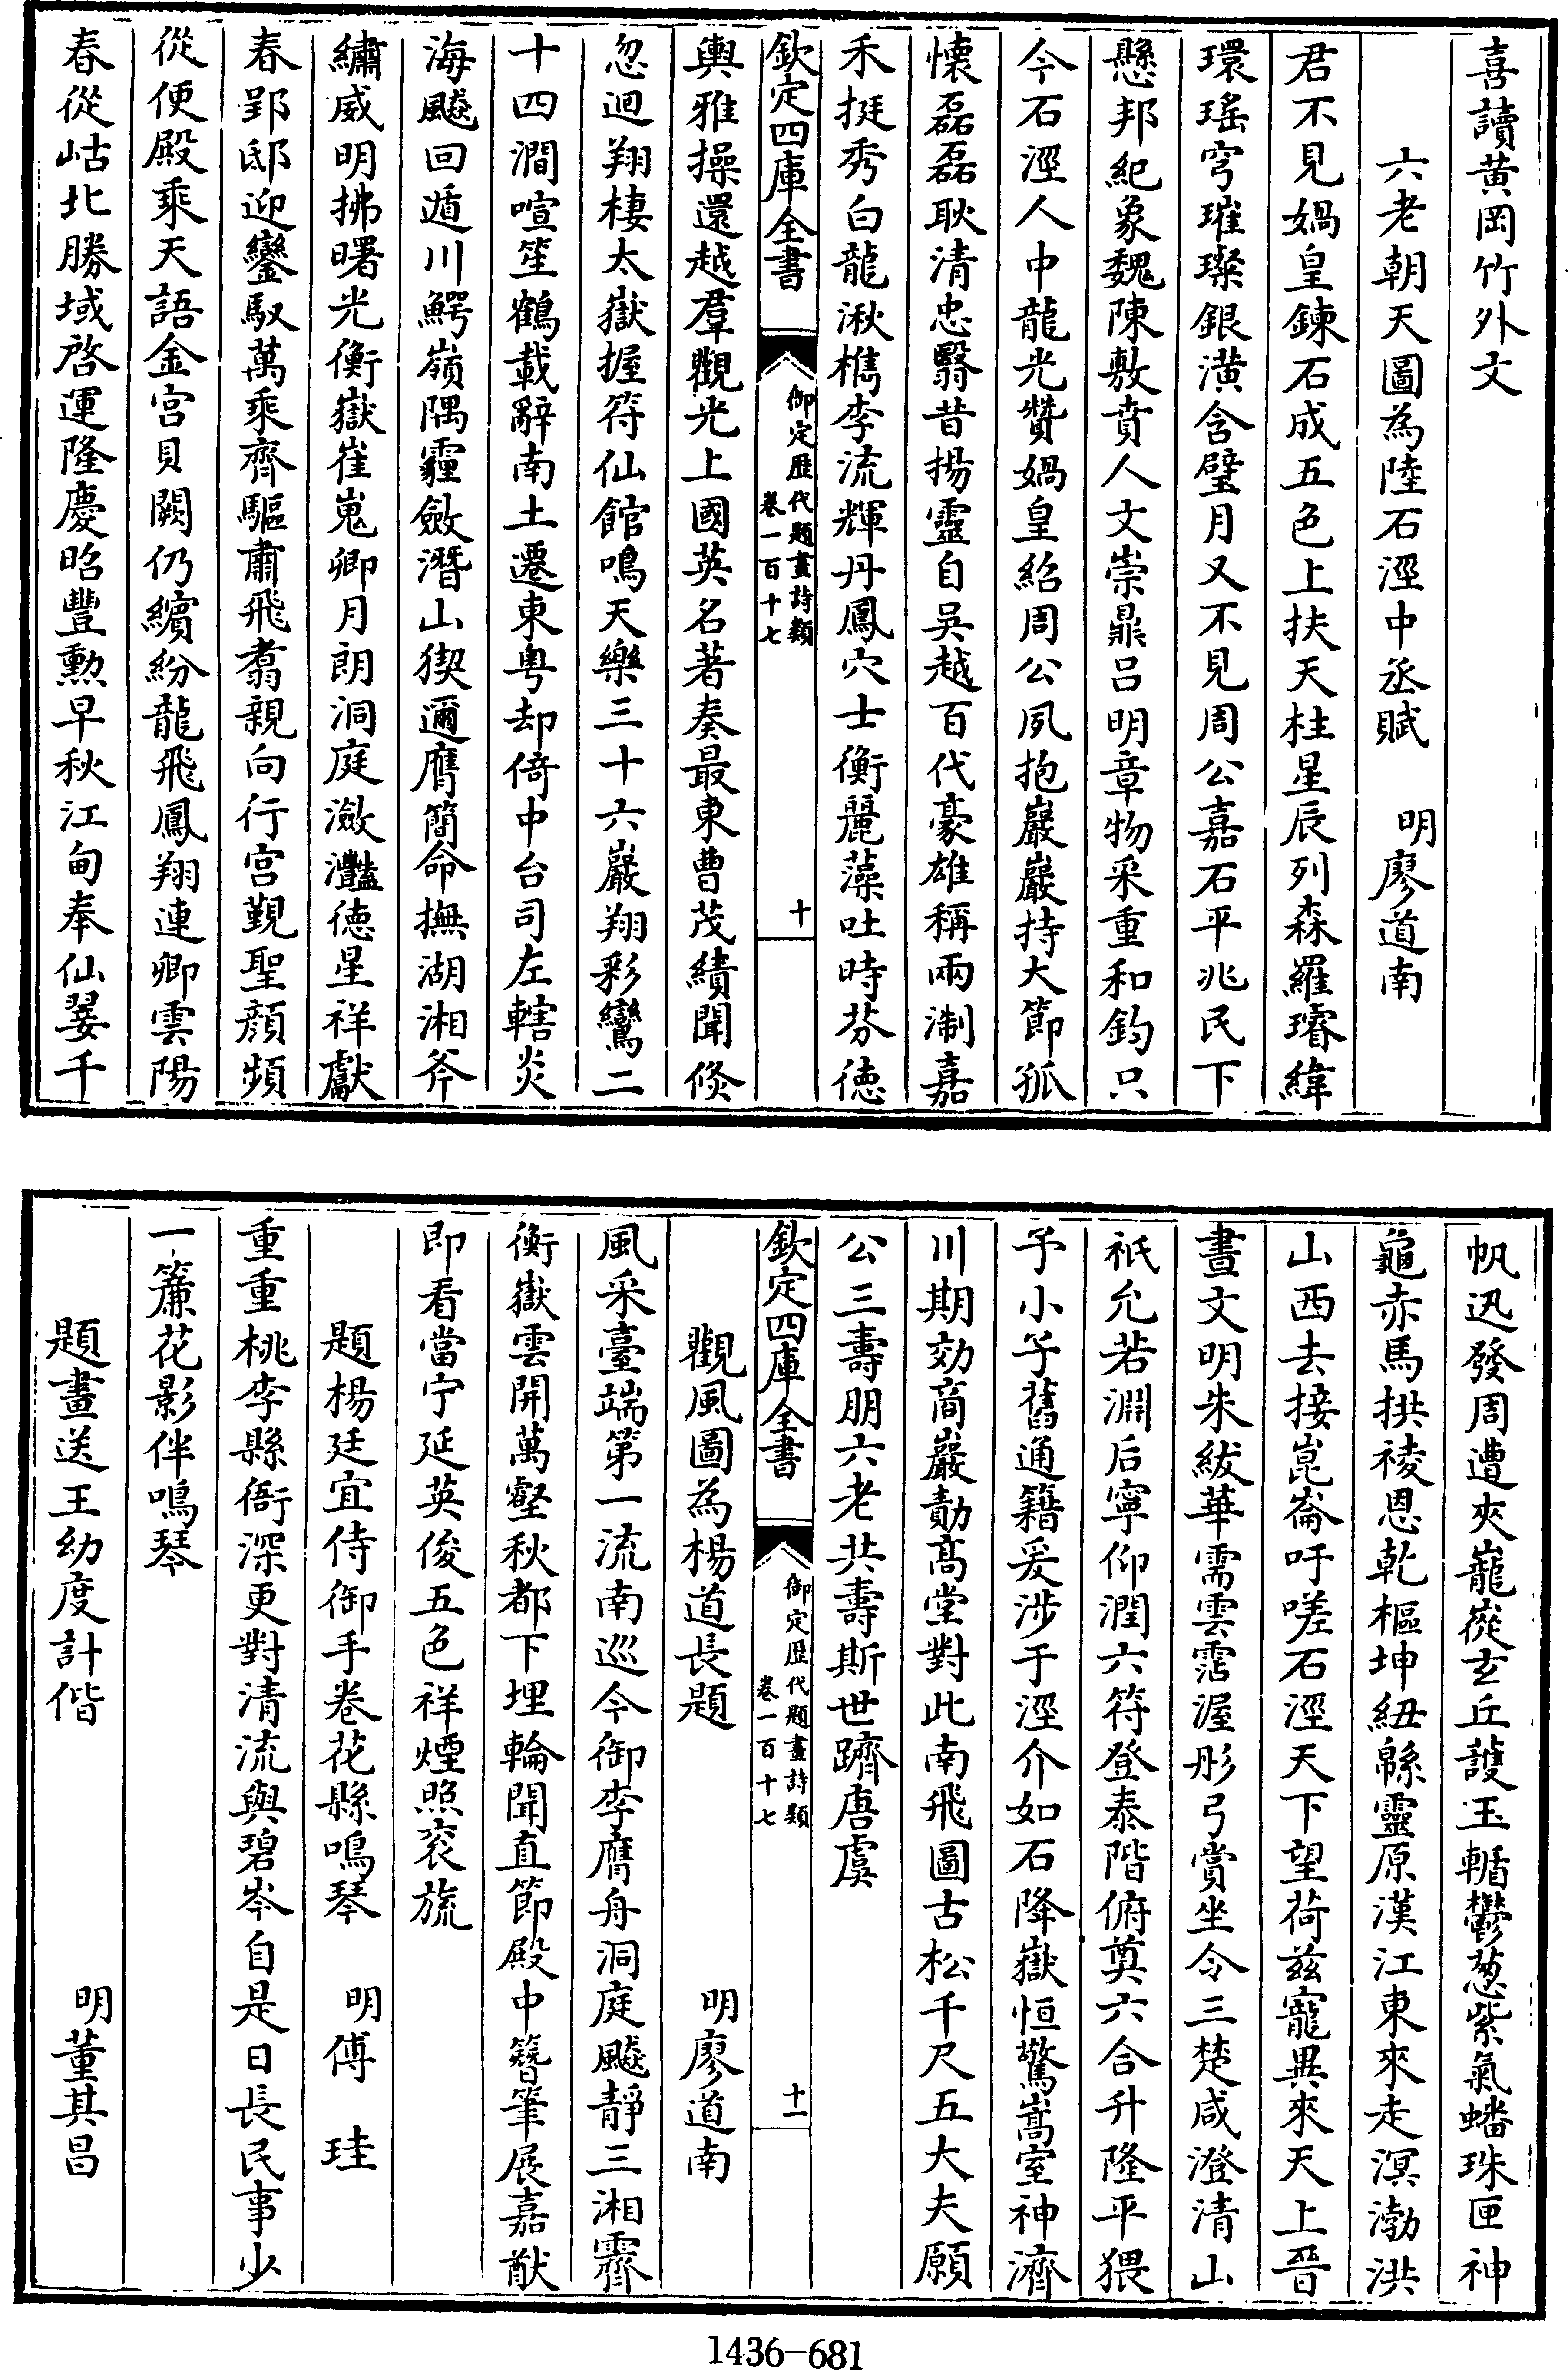 喜讀黄岡竹外文
六老朝天圖為陸石涇中丞賦 明廖道南
君不見媧皇鍊石成五色上扶天柱星辰列森羅璿緯
環瑤穹璀璨銀潢含璧月又不見周公嘉石平兆民下
懸邦紀象魏陳敷賁人文崇鼎呂明章物采重和鈞只
今石涇人中龍光贊媧皇紹周公夙抱巖巖持大節孤
懷磊磊耿清忠翳昔揚靈自吳越百代豪雄稱兩浙嘉
禾挺秀白龍湫檇李流輝丹鳳穴士衡麗藻吐時芬徳
欽定四庫全書
御定歴代題畫詩類
卷一百十七
十
輿雅操還越羣觀光上國英名著奏最東曹茂績聞倐
忽迴翔棲太嶽握符仙館鳴天樂三十六巖翔彩鸞二
十四澗喧笙鶴載辭南土遷東粤却倚中台司左轄炎
海颷回遁川鰐嶺隅霾斂潛山猰邇膺簡命撫湖湘斧
繡威明拂曙光衡嶽崔嵬卿月朗洞庭瀲灩徳星祥獻
春郢邸迎鑾馭萬乘齊驅肅飛翥親向行宫覲聖顔頻
從便殿乘天語金宫貝闕仍繽紛龍飛鳳翔連卿雲陽
春從岵北勝域啓運隆慶昭豐勲早秋江甸奉仙翣千
帆迅發周遭夾巃嵸玄丘護玉輴鬱葱紫氣蟠珠匣神
龜赤馬拱祾恩乾樞坤紐緜靈原漢江東來走溟渤洪
山西去接崑崙吁嗟石涇天下望荷兹寵異來天上晉
晝文明朱紱華需雲霑渥彤弓賞坐令三楚咸澄清山
祇允若淵后寧仰潤六符登泰階俯奠六合升隆平猥
予小子舊通籍爰涉于涇介如石降嶽恒驚嵩室神濟
川期効商巖勣高堂對此南飛圖古松千尺五大夫願
公三壽朋六老共壽斯世躋唐虞
欽定四庫全書
御定歴代題畫詩類
卷一百十七
十一
觀風圖為楊道長題 明廖道南
風采臺端第一流南巡今御李膺舟洞庭颷靜三湘霽
衡嶽雲開萬壑秋都下埋輪聞直節殿中簪筆展嘉猷
即看當宁延英俊五色祥煙照衮旒
題楊廷宜侍御手卷花縣鳴琴 明傅珪
重重桃李縣衙深更對清流與碧岑自是日長民事少
一簾花影伴鳴琴
題畫送王幼度計偕 明董其昌
1436-681